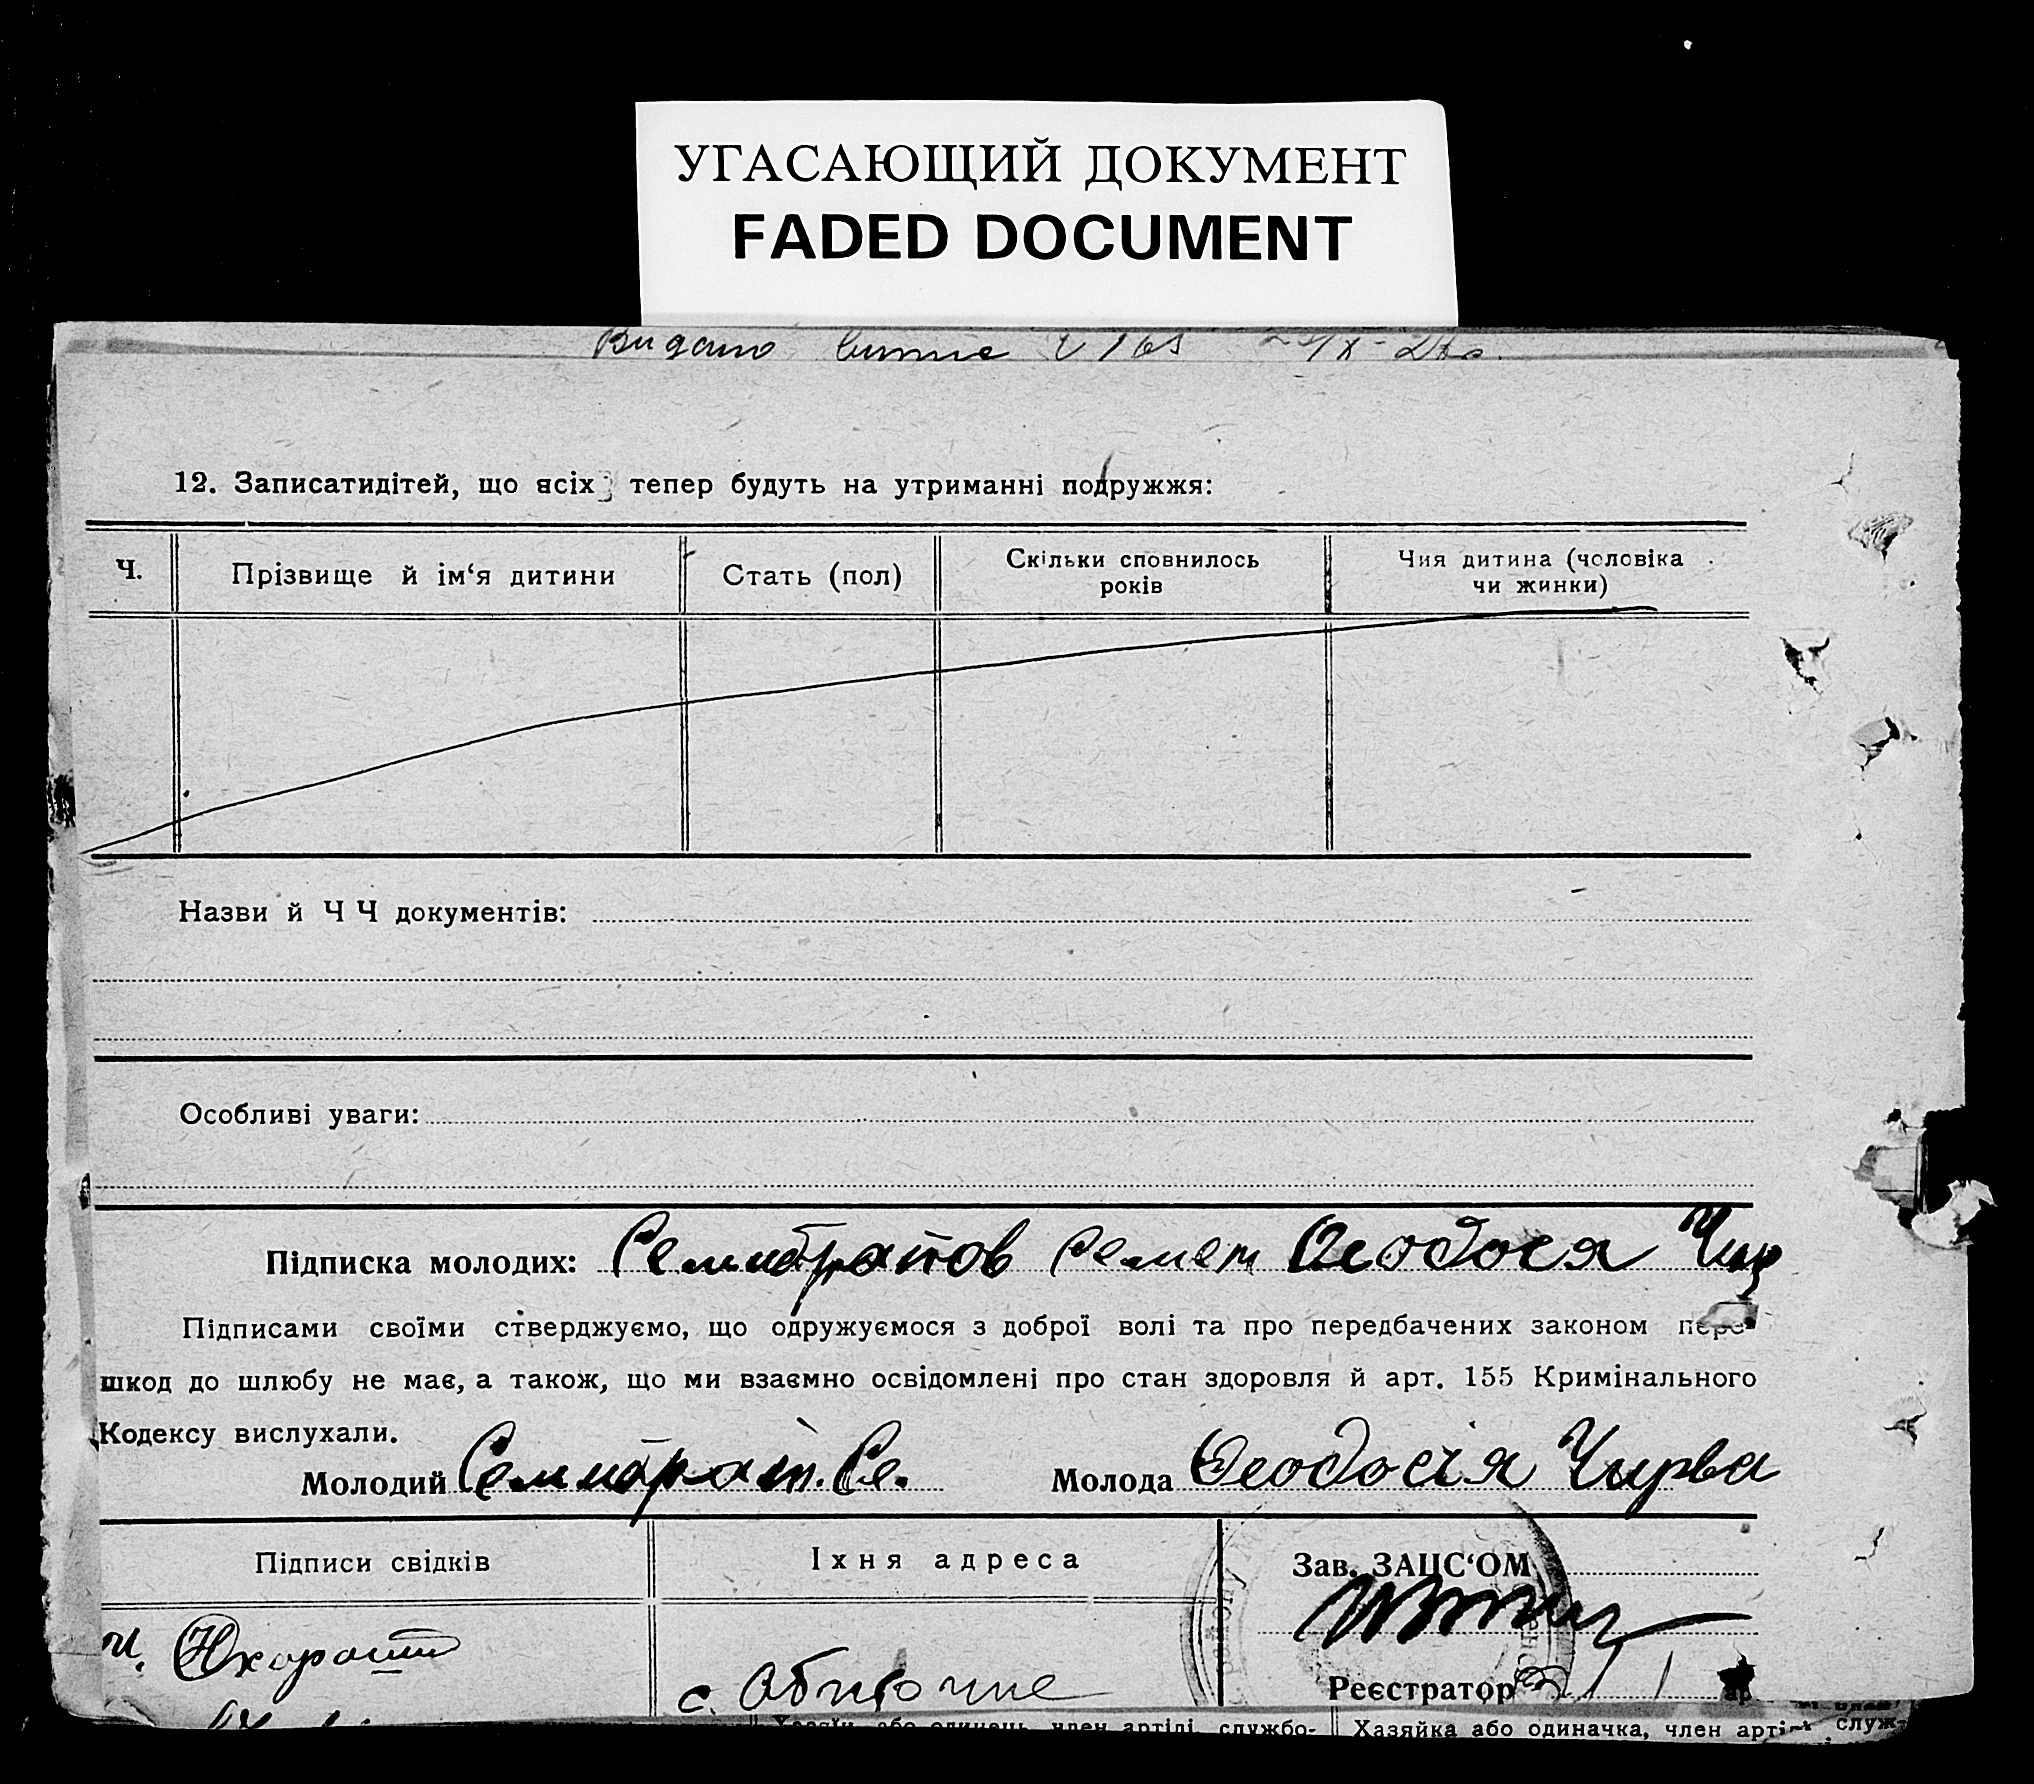 УГАСАЮЩИЙ ДОКУМЕНТ
FADED DOCUMENT
Видано
12. Записатидітей, що всіх тепер будуть на утриманні подружжя:
Ч.
Прізвище й ім‘я дитини
Стать (пол)
Скільки сповнилось
років
Чия дитина (чоловіка
чи жинки)
Назви й Ч Ч документів:
Особливі уваги:
Підписка молодих: Семибратов Семен Феодосія Чир
Підписами своїми стверджуємо, що одружуємося з доброї волі та про передбачених законом пере-
шкод до шлюбу не має, а також, що ми взаємно освідомлені про стан здоровля й арт. 155 Кримінального
Кодексу вислухали.
Молодий Семибрат. Се. Молода Феодосія Чирва
Підписи свідків
Їхня адреса
Зав. ЗАЦС‘ОМ
с. Обиточне
Реєстратор
Хазяїн або одинець, член артілі, службо-
Хазяйка або одиначка, член арті- служ-